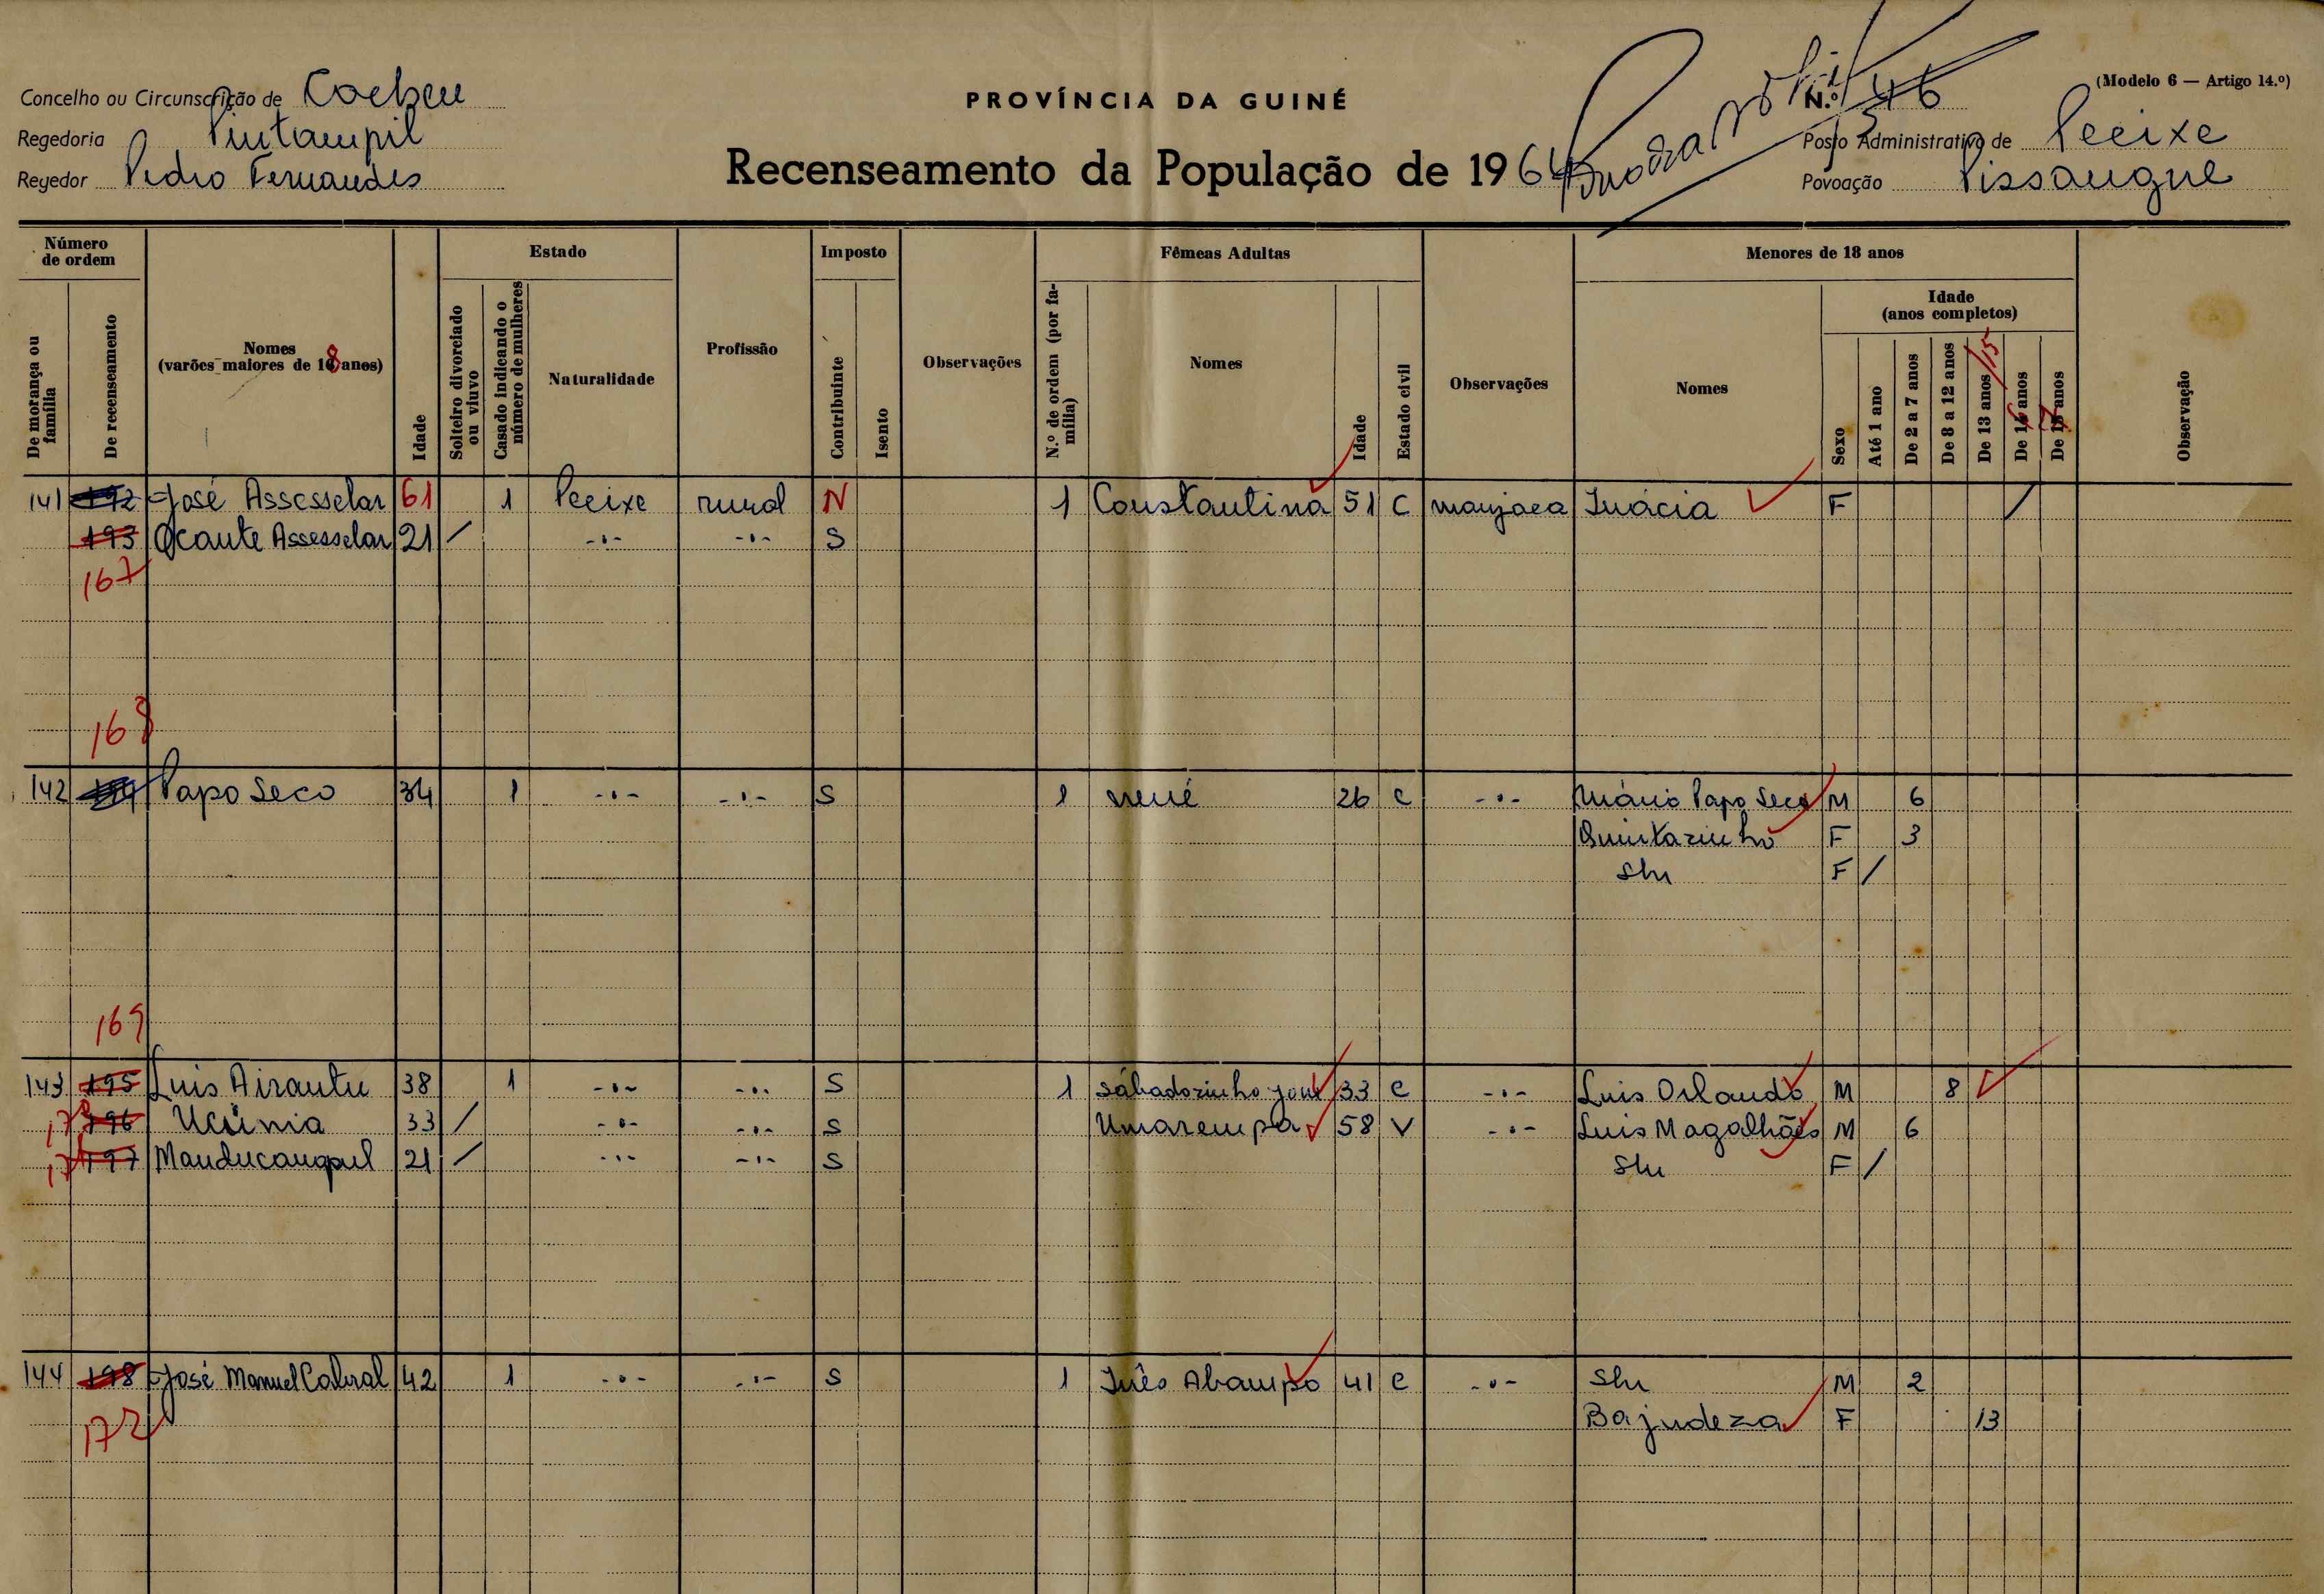 Concelho ou Circunscrição de Cacheu
PROVÍNCIA DA GUINÉ
N.º 46
(Modelo 6 — Artigo 14.º)
Regedoria Pintampil
Posto Administrativo de Pecixe
Regedor Pedro Fernandes
Recenseamento da População de 1964
Povoação Pissangue
Número de ordem
De morança ou família
De recenseamento
Nomes
(varões maiores de 18 anos)
Idade
Estado
Solteiro divorciado ou viuvo
Casado indicando o número de mulheres
Naturalidade
Profissão
Imposto
Contribuinte
Isento
Observações
Fêmeas Adultas
N.º de ordem (por família)
Nomes
Idade
Estado civil
Observações
Menores de 18 anos
Nomes
Idade
(anos completos)
Sexo
Até 1 ano
De 2 a 7 anos
De 8 a 12 anos
De 13 anos /15
De 16 anos
De 17 anos
Observação
141 192 José Assesselar 61 1 Pecixe rural N 1 Constantina 51 C manjaca Inácia F /
193 Ocante Assesselar 21 / -"- -"- S
167
168
142 194 Papo Seco 34 1 -"- -"- S 1 nené 26 C -"- Mário Papo Seco M 6
Quintazinho F 3
S/n F /
169
143 195 Luis Airantu 38 1 -"- -"- S 1 Sábadozinho 33 C -"- Luis Orlando M 8
170 196 Ucúnia 33 / -"- -"- S Umarempa 58 V -"- Luis Magalhães M 6
171 197 21 / -"- -"- S S/n F /
144 198 José Manuel Cabral 42 1 -"- -"- S 1 Inês Abampo 41 C -"- S/n M 2
172 Bajudeza F 13